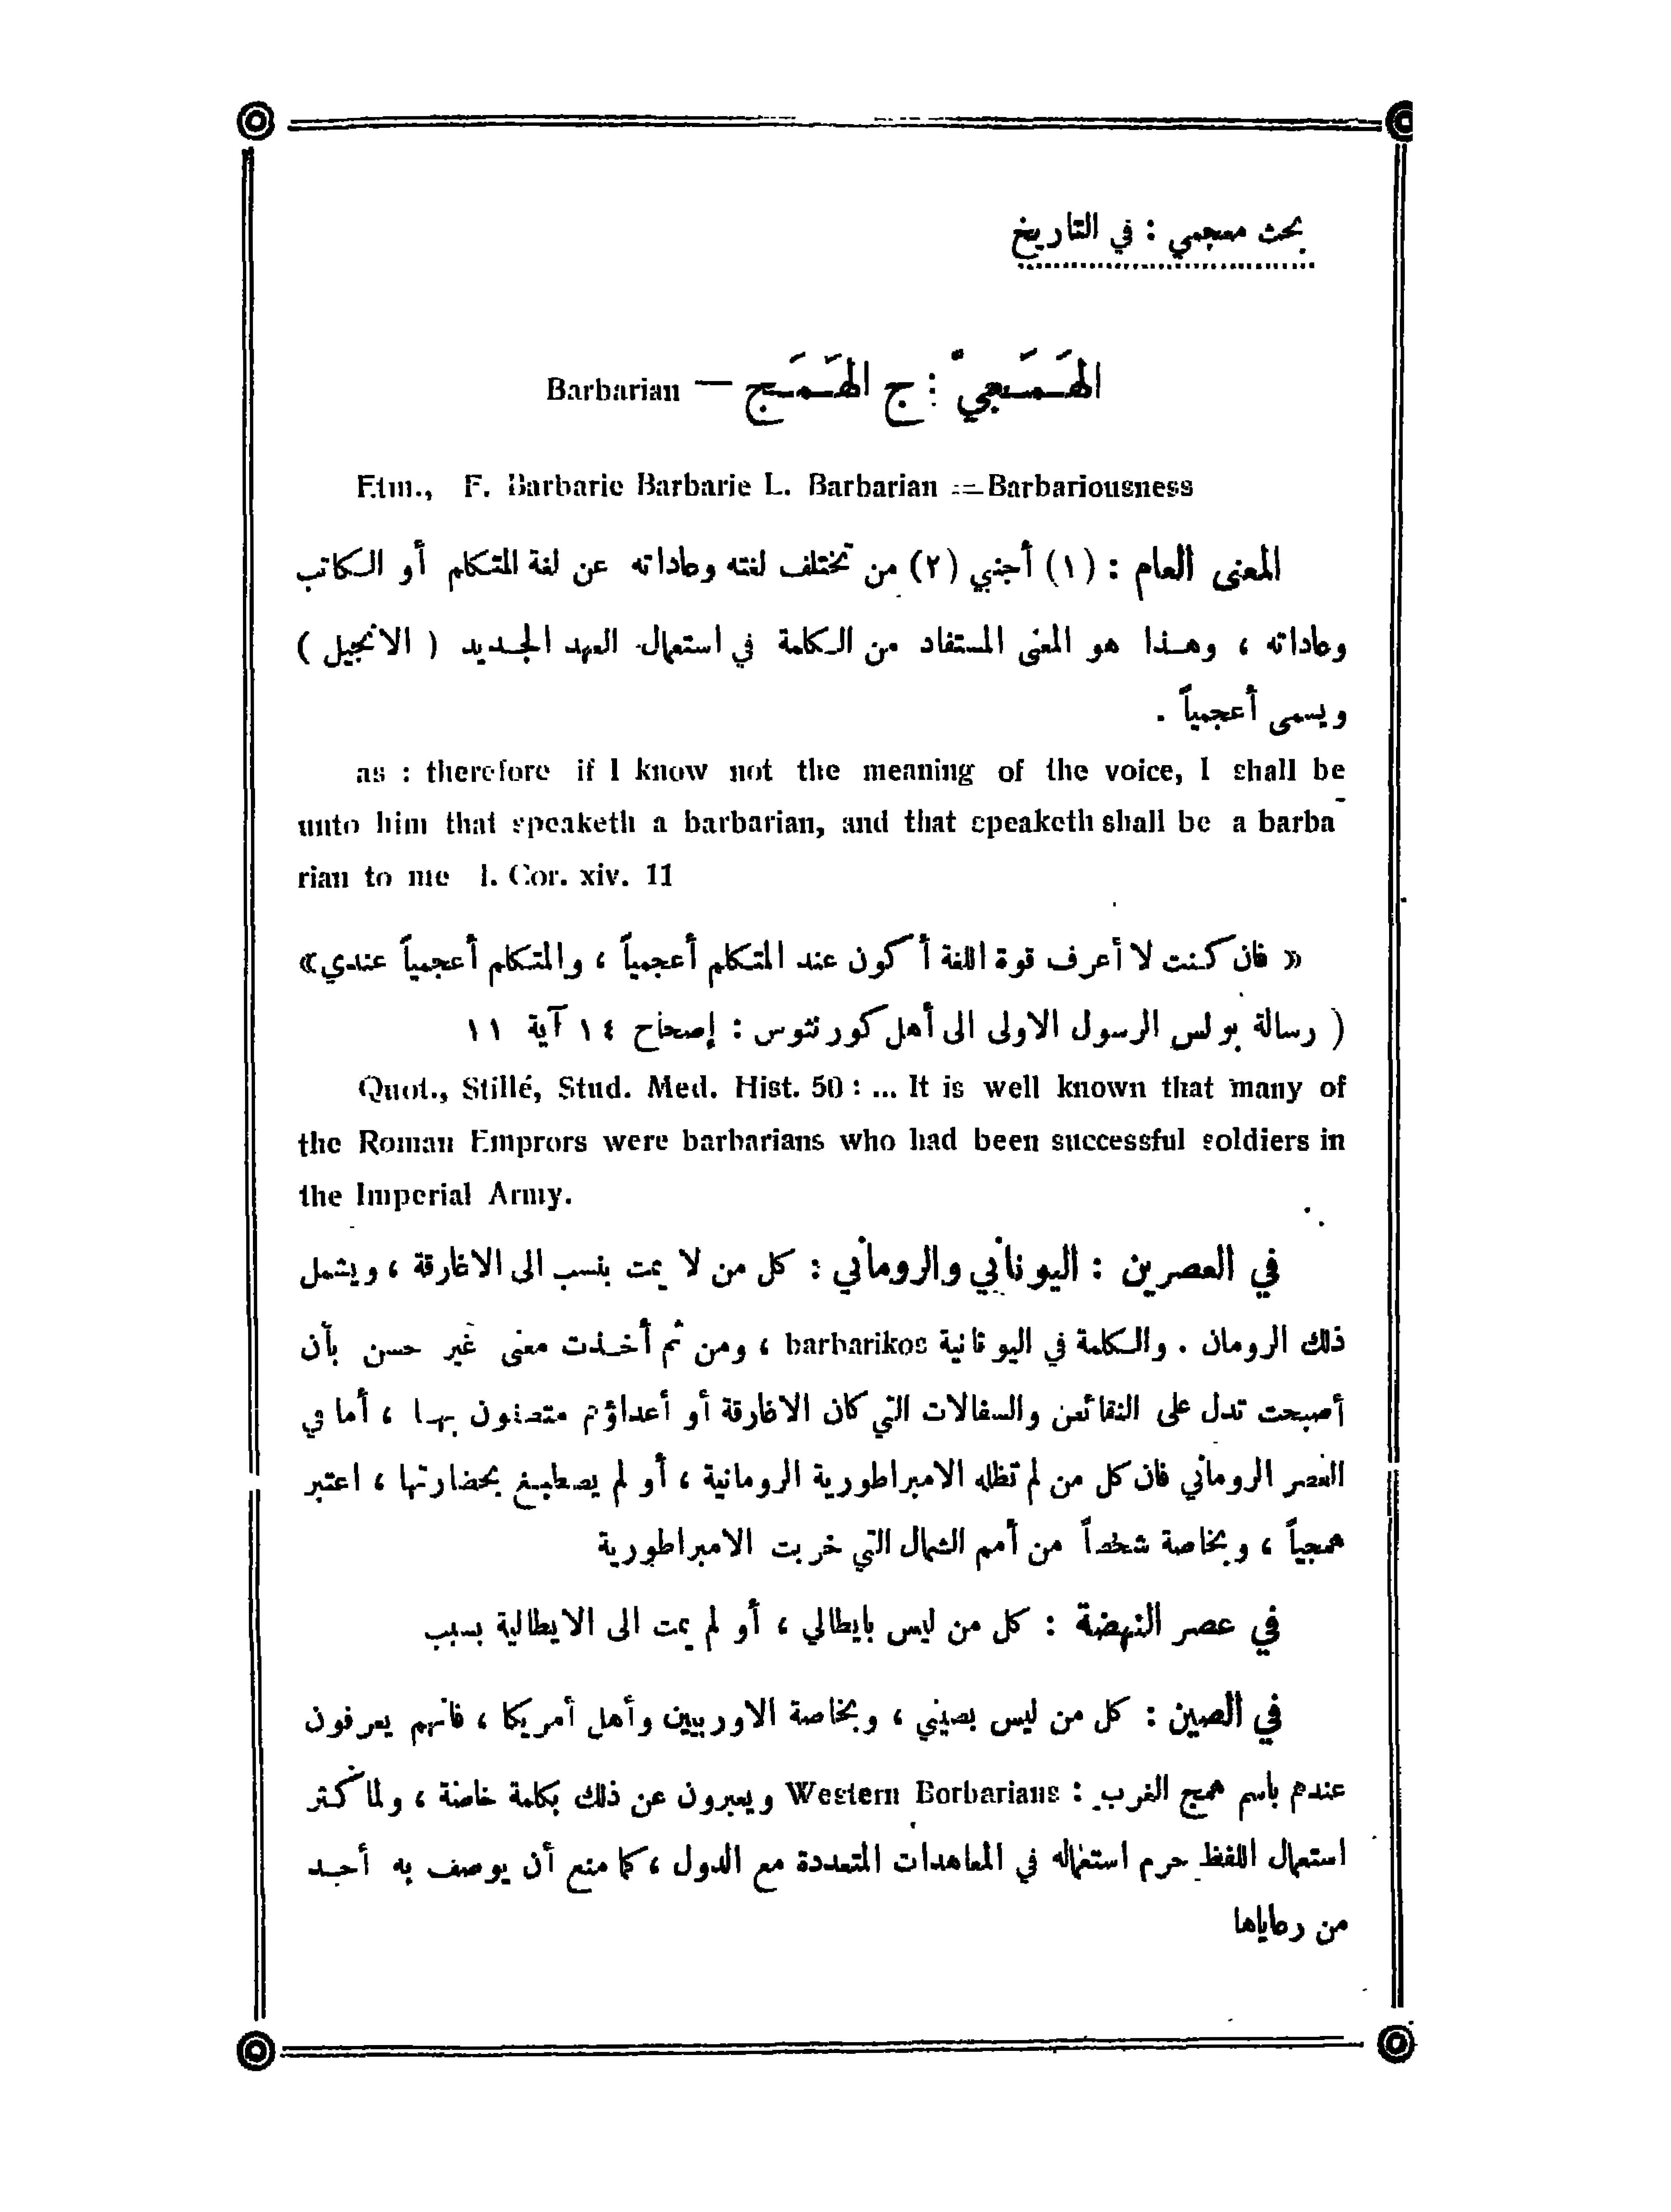 بحث معجمي : في التاريخ
الهَمَجيّ : ج الهَمَج — Barbarian
Etm., F. Barbarie Barbarie L. Barbarian = Barbariousness
المعنى العام : (١) أجنبي (٢) من تختلف لغته وعاداته عن لغة المتكلم أو الكاتب
وعاداته ، وهذا هو المعنى المستفاد من الكلمة في استعمال العهد الجديد ( الانجيل )
ويسمى أعجمياً .
as : therefore if I know not the meaning of the voice, I shall be
unto him that speaketh a barbarian, and that speaketh shall be a barba-
rian to me I. Cor. xiv. 11
« فان كنت لا أعرف قوة اللغة أكون عند المتكلم أعجمياً ، والمتكلم أعجمياً عندي »
( رسالة بولس الرسول الاولى الى أهل كورنثوس : إصحاح ١٤ آية ١١
Quot., Stillé, Stud. Med. Hist. 50 : ... It is well known that many of
the Roman Emprors were barbarians who had been successful soldiers in
the Imperial Army.
في العصرين : اليوناني والروماني : كل من لا يمت بنسب الى الاغارقة ، ويشمل
ذلك الرومان . والكلمة في اليونانية barbarikos ، ومن ثم أخذت معنى غير حسن بأن
أصبحت تدل على النقائص والسفالات التي كان الاغارقة أو أعداؤهم متصفون بها ، أما في
العصر الروماني فان كل من لم تظله الامبراطورية الرومانية ، أو لم يصطبغ بحضارتها ، اعتبر
همجياً ، وبخاصة شخصاً من أمم الشمال التي خربت الامبراطورية
في عصر النهضة : كل من ليس بايطالي ، أو لم يمت الى الايطالية بسبب
في الصين : كل من ليس بصيني ، وبخاصة الاوربيين وأهل أمريكا ، فانهم يعرفون
عندهم باسم همج الغرب : Western Borbarians ويعبرون عن ذلك بكلمة خاصة ، ولما كثر
استعمال اللفظ حرم استعماله في المعاهدات المتعددة مع الدول ، كما منع أن يوصف به أحد
من رعاياها